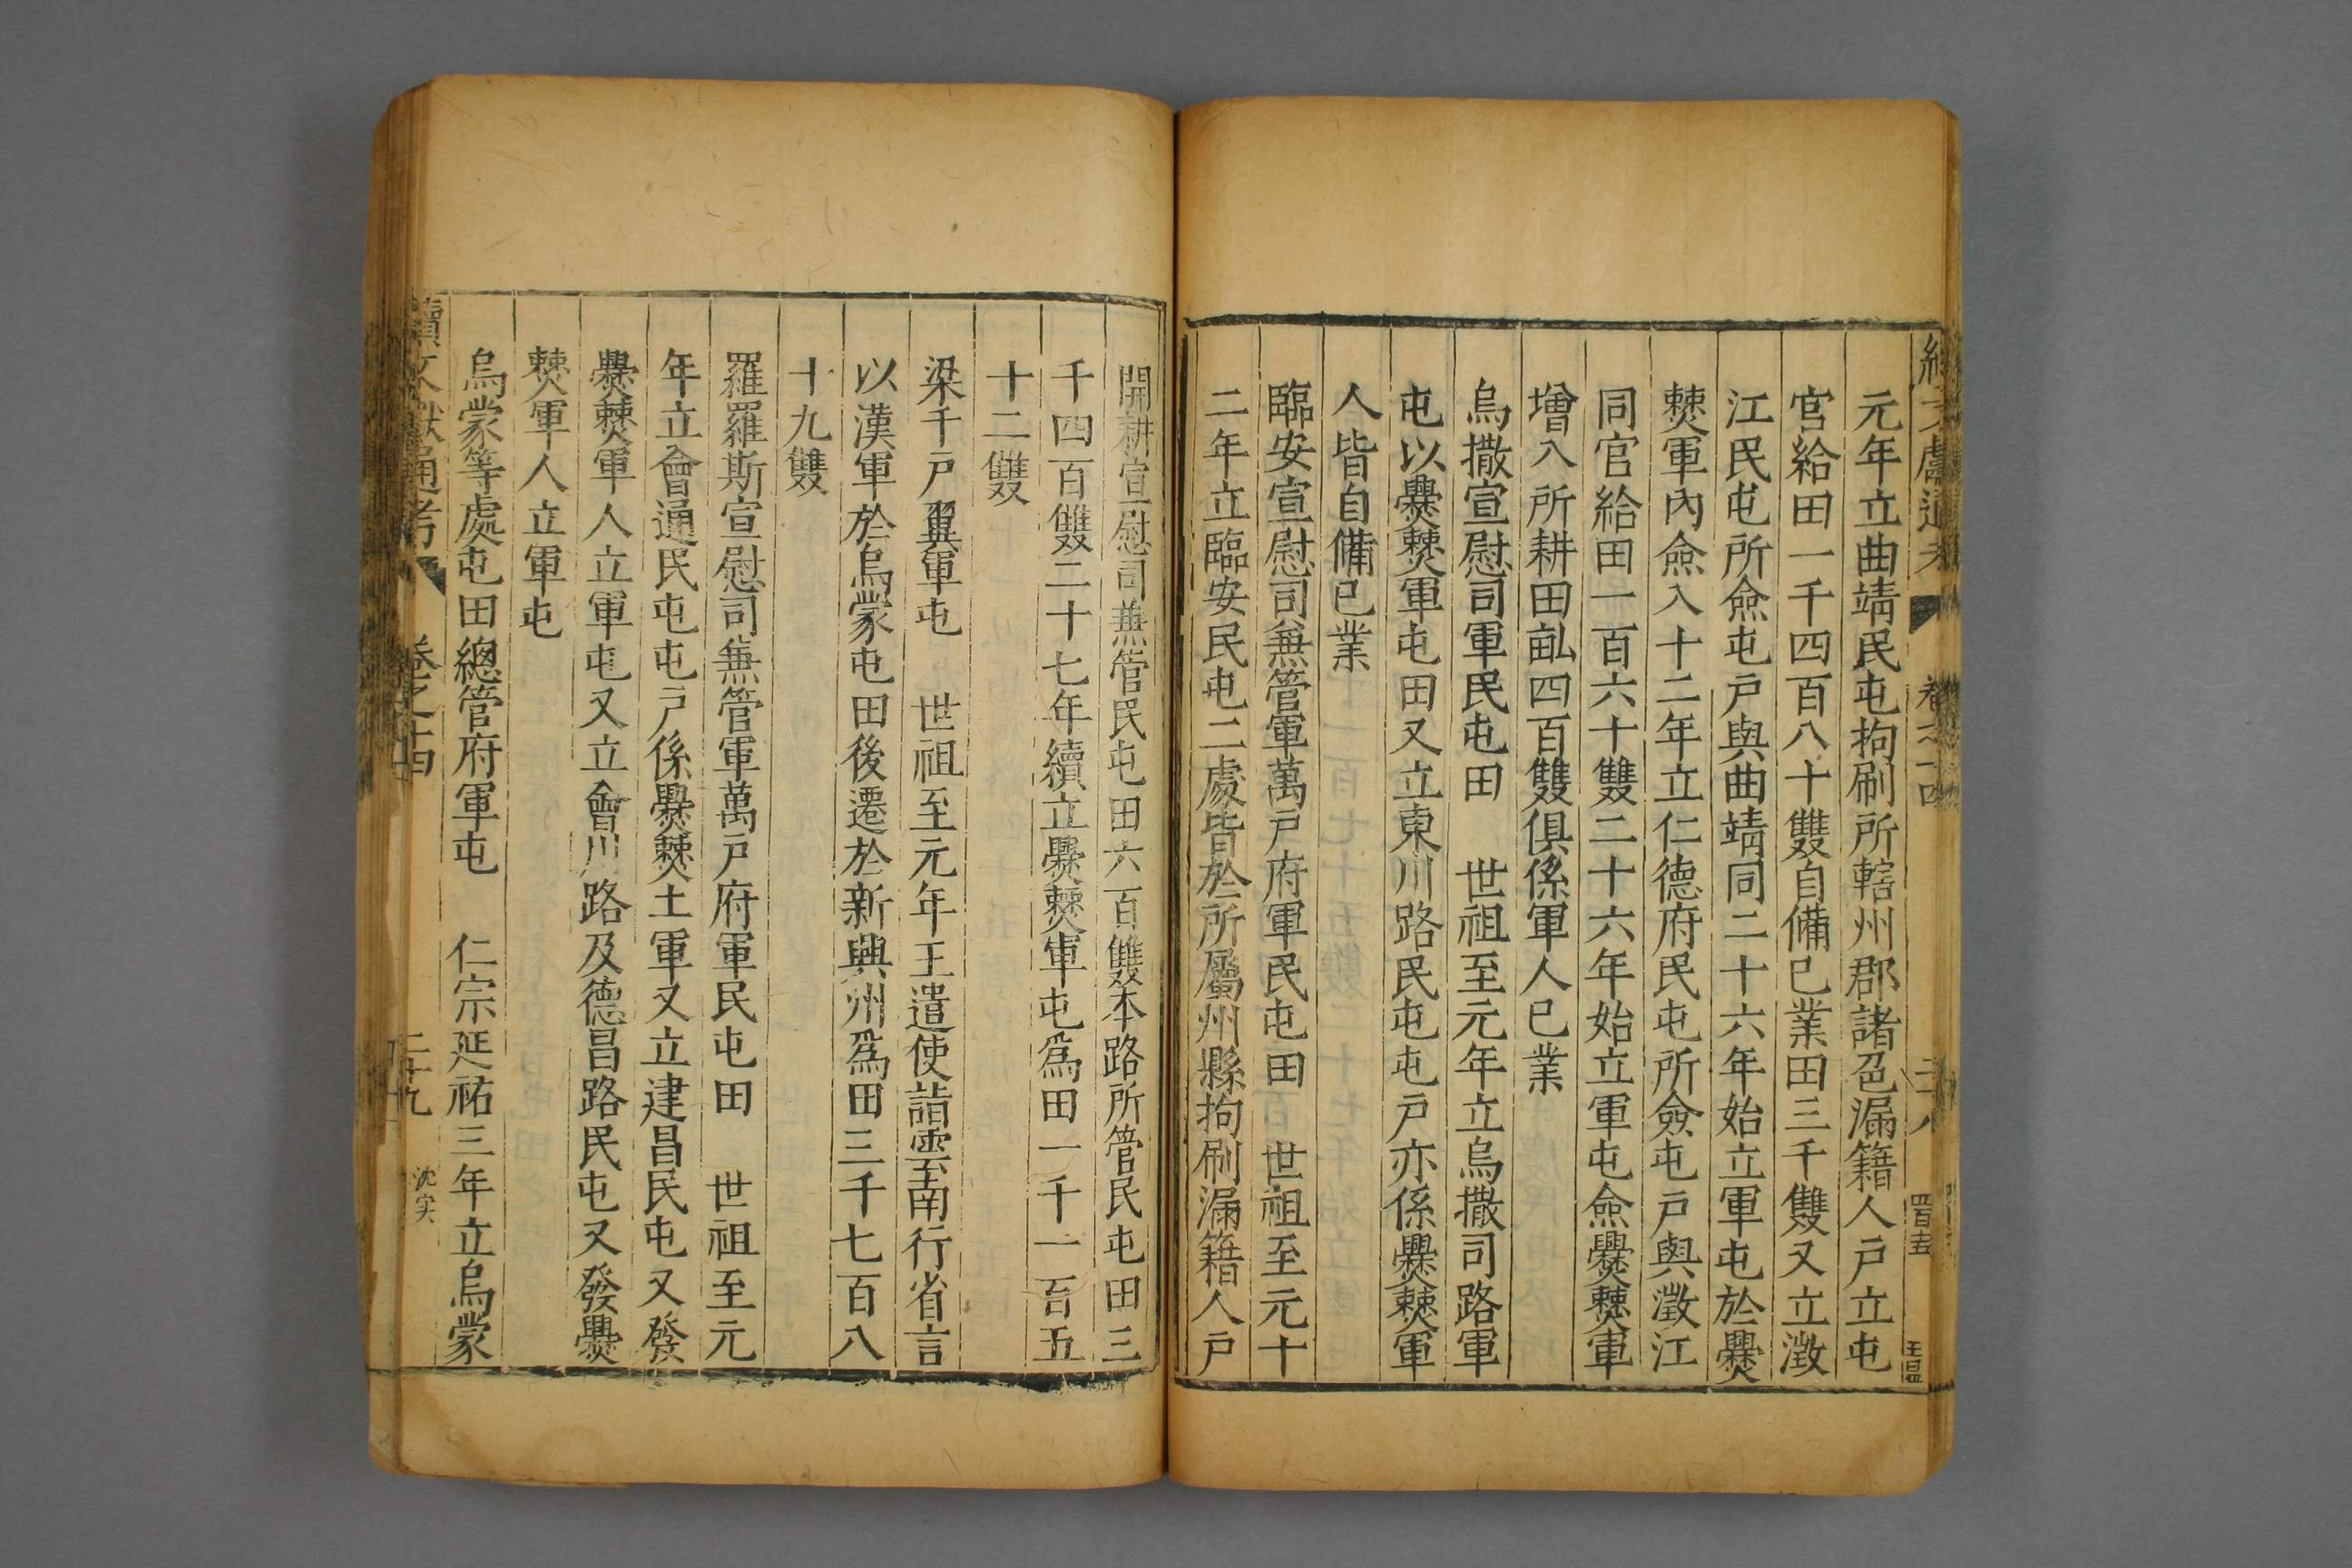 續文獻通考 卷之十四 二十八
元年立曲靖民屯拘刷所轄州郡諸色漏籍人戶立屯
官給田一千四百八十雙自備已業田三千雙又立澂
江民屯所僉屯戶與曲靖同二十六年始立軍屯於爨
僰軍內僉入十二年立仁德府民屯所僉屯戶與澂江
同官給田一百六十雙二十六年始立軍屯僉爨僰軍
增入所耕田畝四百雙俱係軍人已業
烏撒宣慰司軍民屯田 世祖至元年立烏撒司路軍
屯以爨僰軍屯田又立東川路民屯屯戶亦係爨僰軍
人皆自備已業
臨安宣慰司兼管軍萬戶府軍民屯田 世祖至元十
二年立臨安民屯二處皆於所屬州縣拘刷漏籍人戶
開耕宣慰司兼管民屯田六百雙本路所管民屯田三
千四百雙二十七年續立爨僰軍屯爲田一千一百五
十二雙
梁千戶翼軍屯 世祖至元年王遣使詣雲南行省言
以漢軍於烏蒙屯田後遷於新興州爲田三千七百八
十九雙
羅羅斯宣慰司兼管軍萬戶府軍民屯田 世祖至元
年立會通民屯屯戶係爨僰土軍又立建昌民屯又發
爨僰軍人立軍屯又立會川路及德昌路民屯又發爨
僰軍人立軍屯
烏蒙等處屯田總管府軍屯 仁宗延祐三年立烏蒙
續文獻通考 卷之十四 二十九 沈实